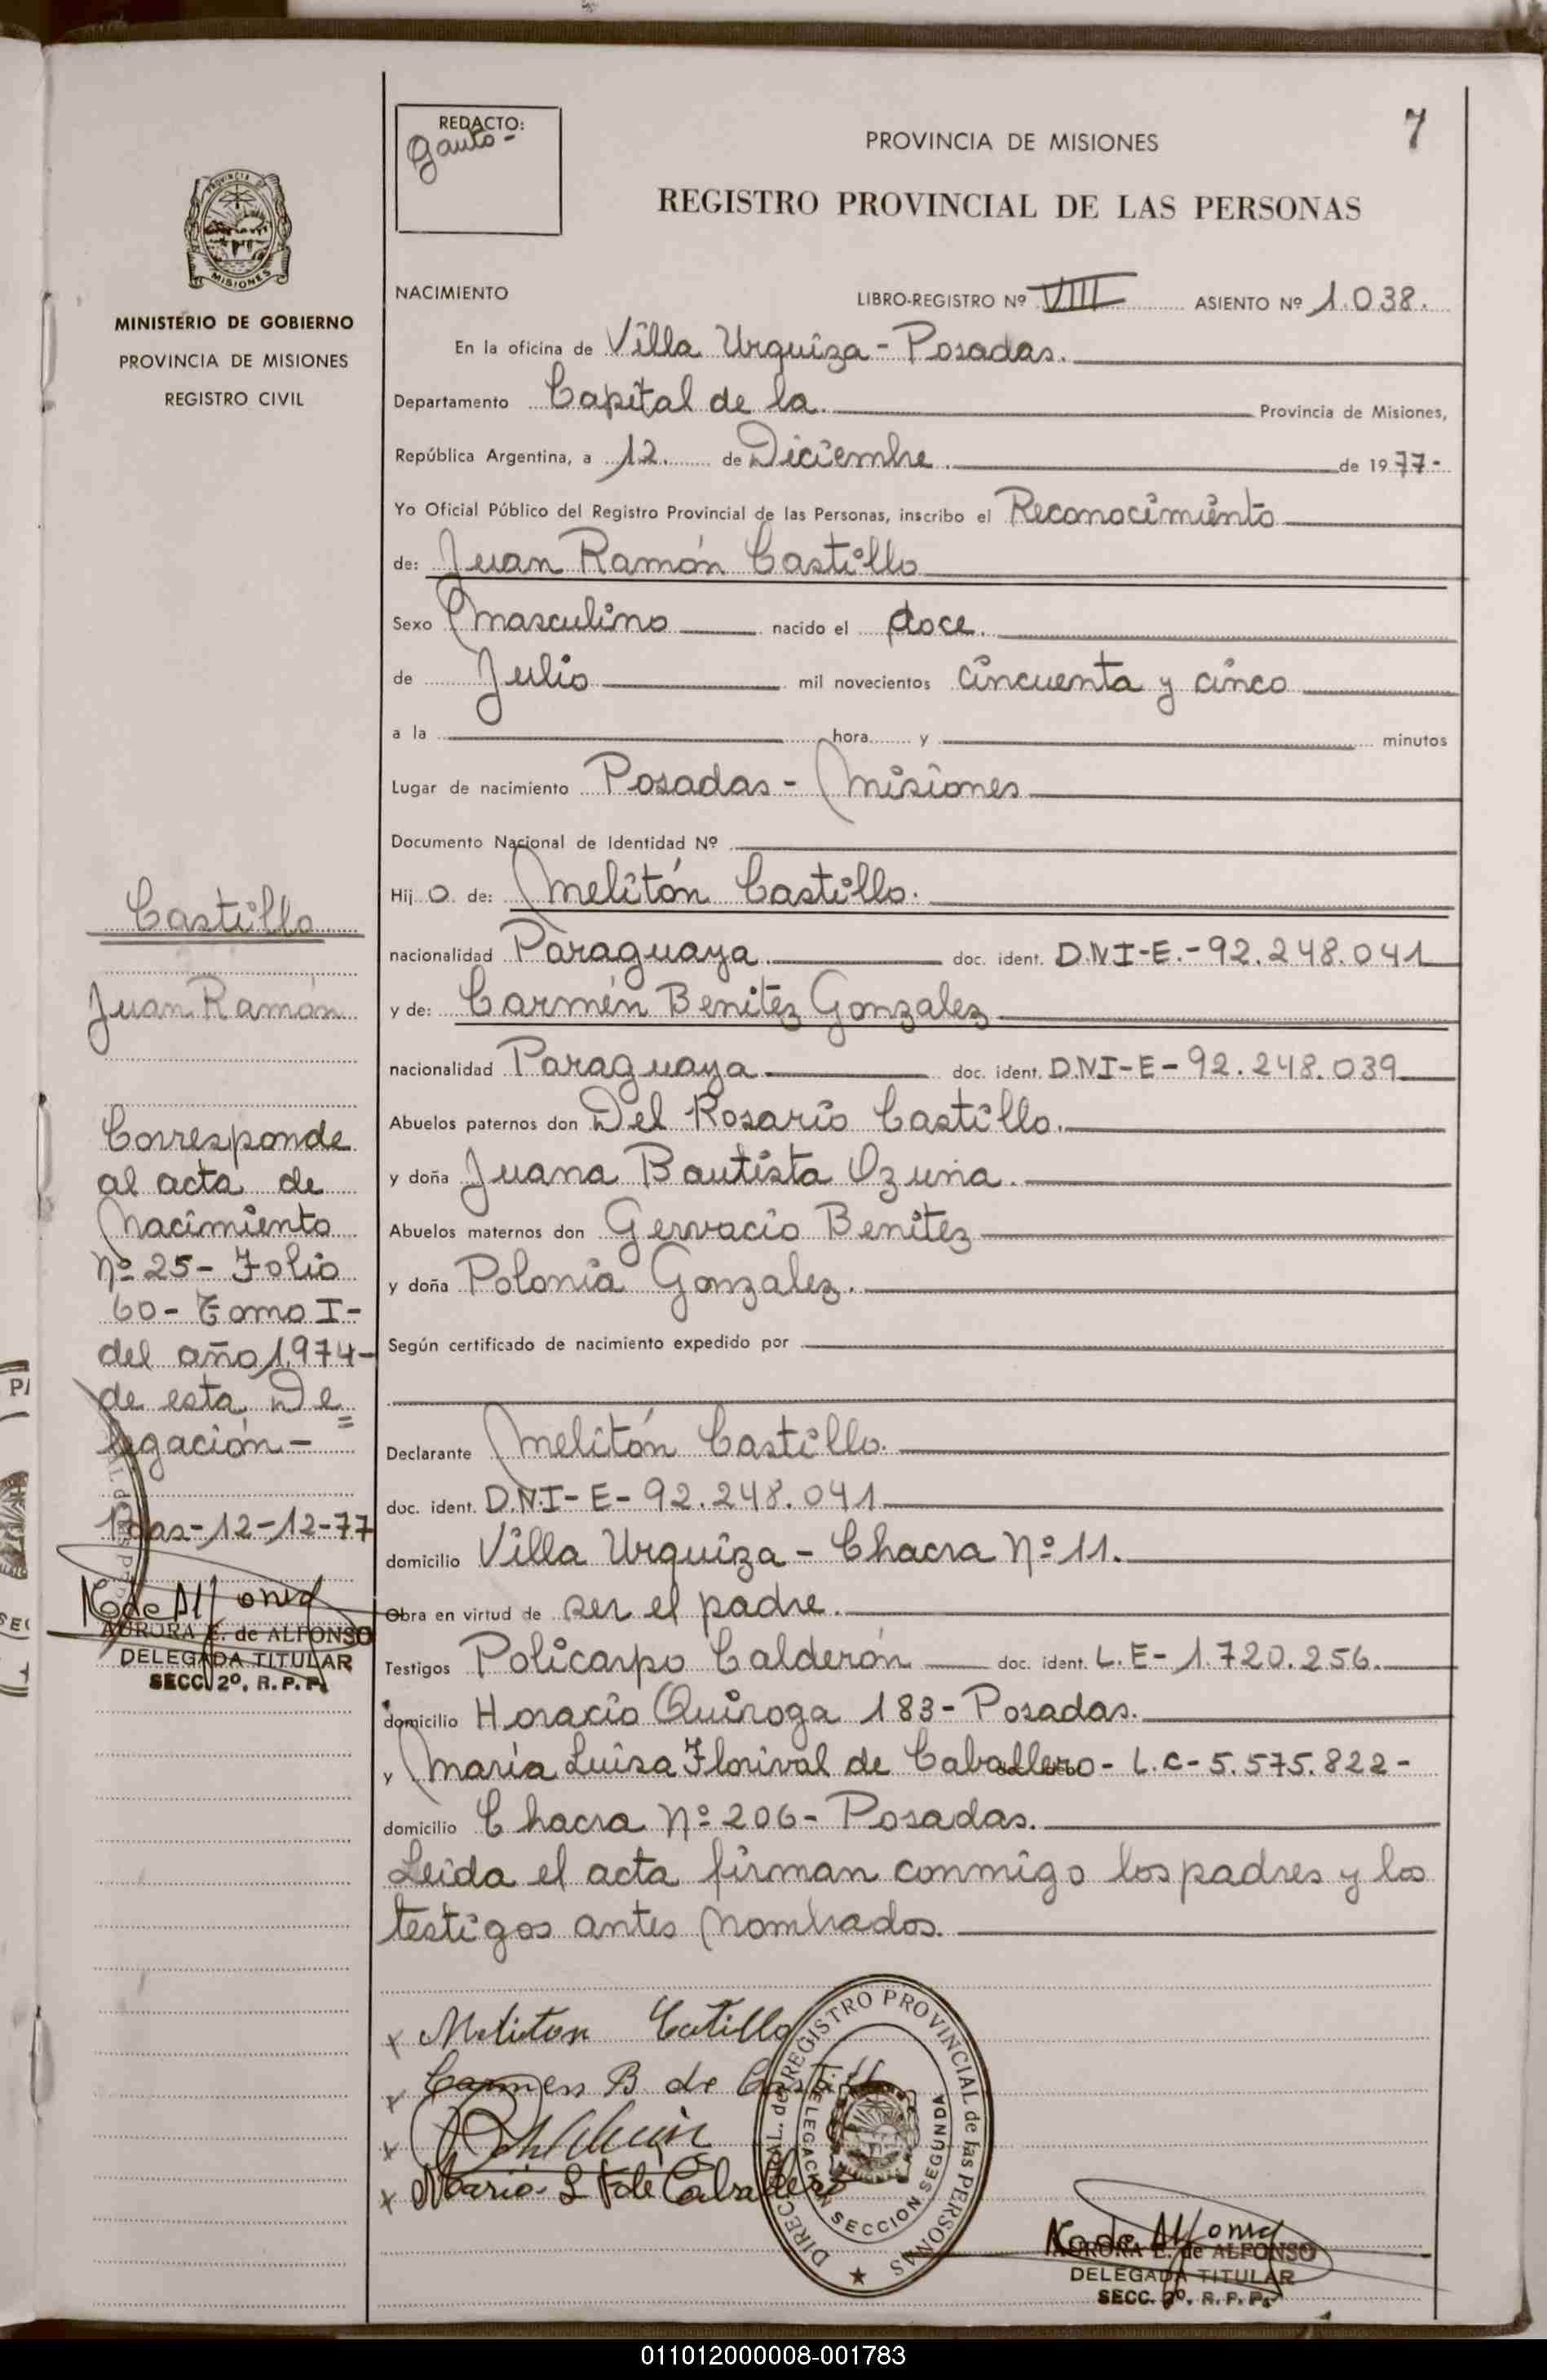 7
REDACTO:
Gauto-
PROVINCIA DE MISIONES
REGISTRO PROVINCIAL DE LAS PERSONAS
PROVINCIA DE
MISIONES
MINISTERIO DE GOBIERNO
PROVINCIA DE MISIONES
REGISTRO CIVIL
NACIMIENTO
LIBRO-REGISTRO Nº VIII ASIENTO Nº 1.038.
En la oficina de Villa Urquiza - Posadas.
Departamento Capital de la. Provincia de Misiones,
República Argentina, a 12. de Diciembre. de 1977-
Yo Oficial Público del Registro Provincial de las Personas, inscribo el Reconocimiento
de: Juan Ramón Castillo
Sexo masculino nacido el doce.
de Julio mil novecientos cincuenta y cinco
a la hora y minutos
Lugar de nacimiento Posadas - Misiones
Documento Nacional de Identidad Nº
Hij o de: Melitón Castillo.
nacionalidad Paraguaya. doc. ident. D.N.I-E.-92.248.041
y de: Carmén Benitez Gonzalez
nacionalidad Paraguaya doc. ident. D.N.I-E-92.248.039
Abuelos paternos don Del Rosario Castillo.
y doña Juana Bautista Ozuna.
Abuelos maternos don Gervacio Benitez
y doña Polonia Gonzalez.
Según certificado de nacimiento expedido por
Declarante Melitón Castillo.
doc. ident. D.N.I-E-92.248.041
domicilio Villa Urquiza - Chacra Nº 11.
Obra en virtud de ser el padre.
Testigos Policarpo Calderón doc. ident. L.E-1.720.256.
domicilio Horacio Quiroga 183-Posadas.
y Maria Luisa Florival de Caballero- L.C-5.575.822-
domicilio Chacra Nº 206- Posadas.
Leida el acta firman conmigo los padres y los
testigos antes nombrados.
Castillo
Juan Ramón
Corresponde
al acta de
Nacimiento
Nº 25- Folio
60- Tomo I-
del año 1.974-
de esta De=
legación-
Pdas-12-12-77
A de Alfonso
AURORA E. de ALFONSO
DELEGADA TITULAR
SECC. 2º. R.P.P.
x Meliton Catillo
x Carmen B de Castill
x
x Maria L F de Caballero
DIREC. GRAL. del REGISTRO PROVINCIAL de las PERSONAS
DELEGACION SECCION SEGUNDA
A de Alfonso
AURORA E. de ALFONSO
DELEGADA TITULAR
SECC. 2º. R.P.P.
011012000008-001783